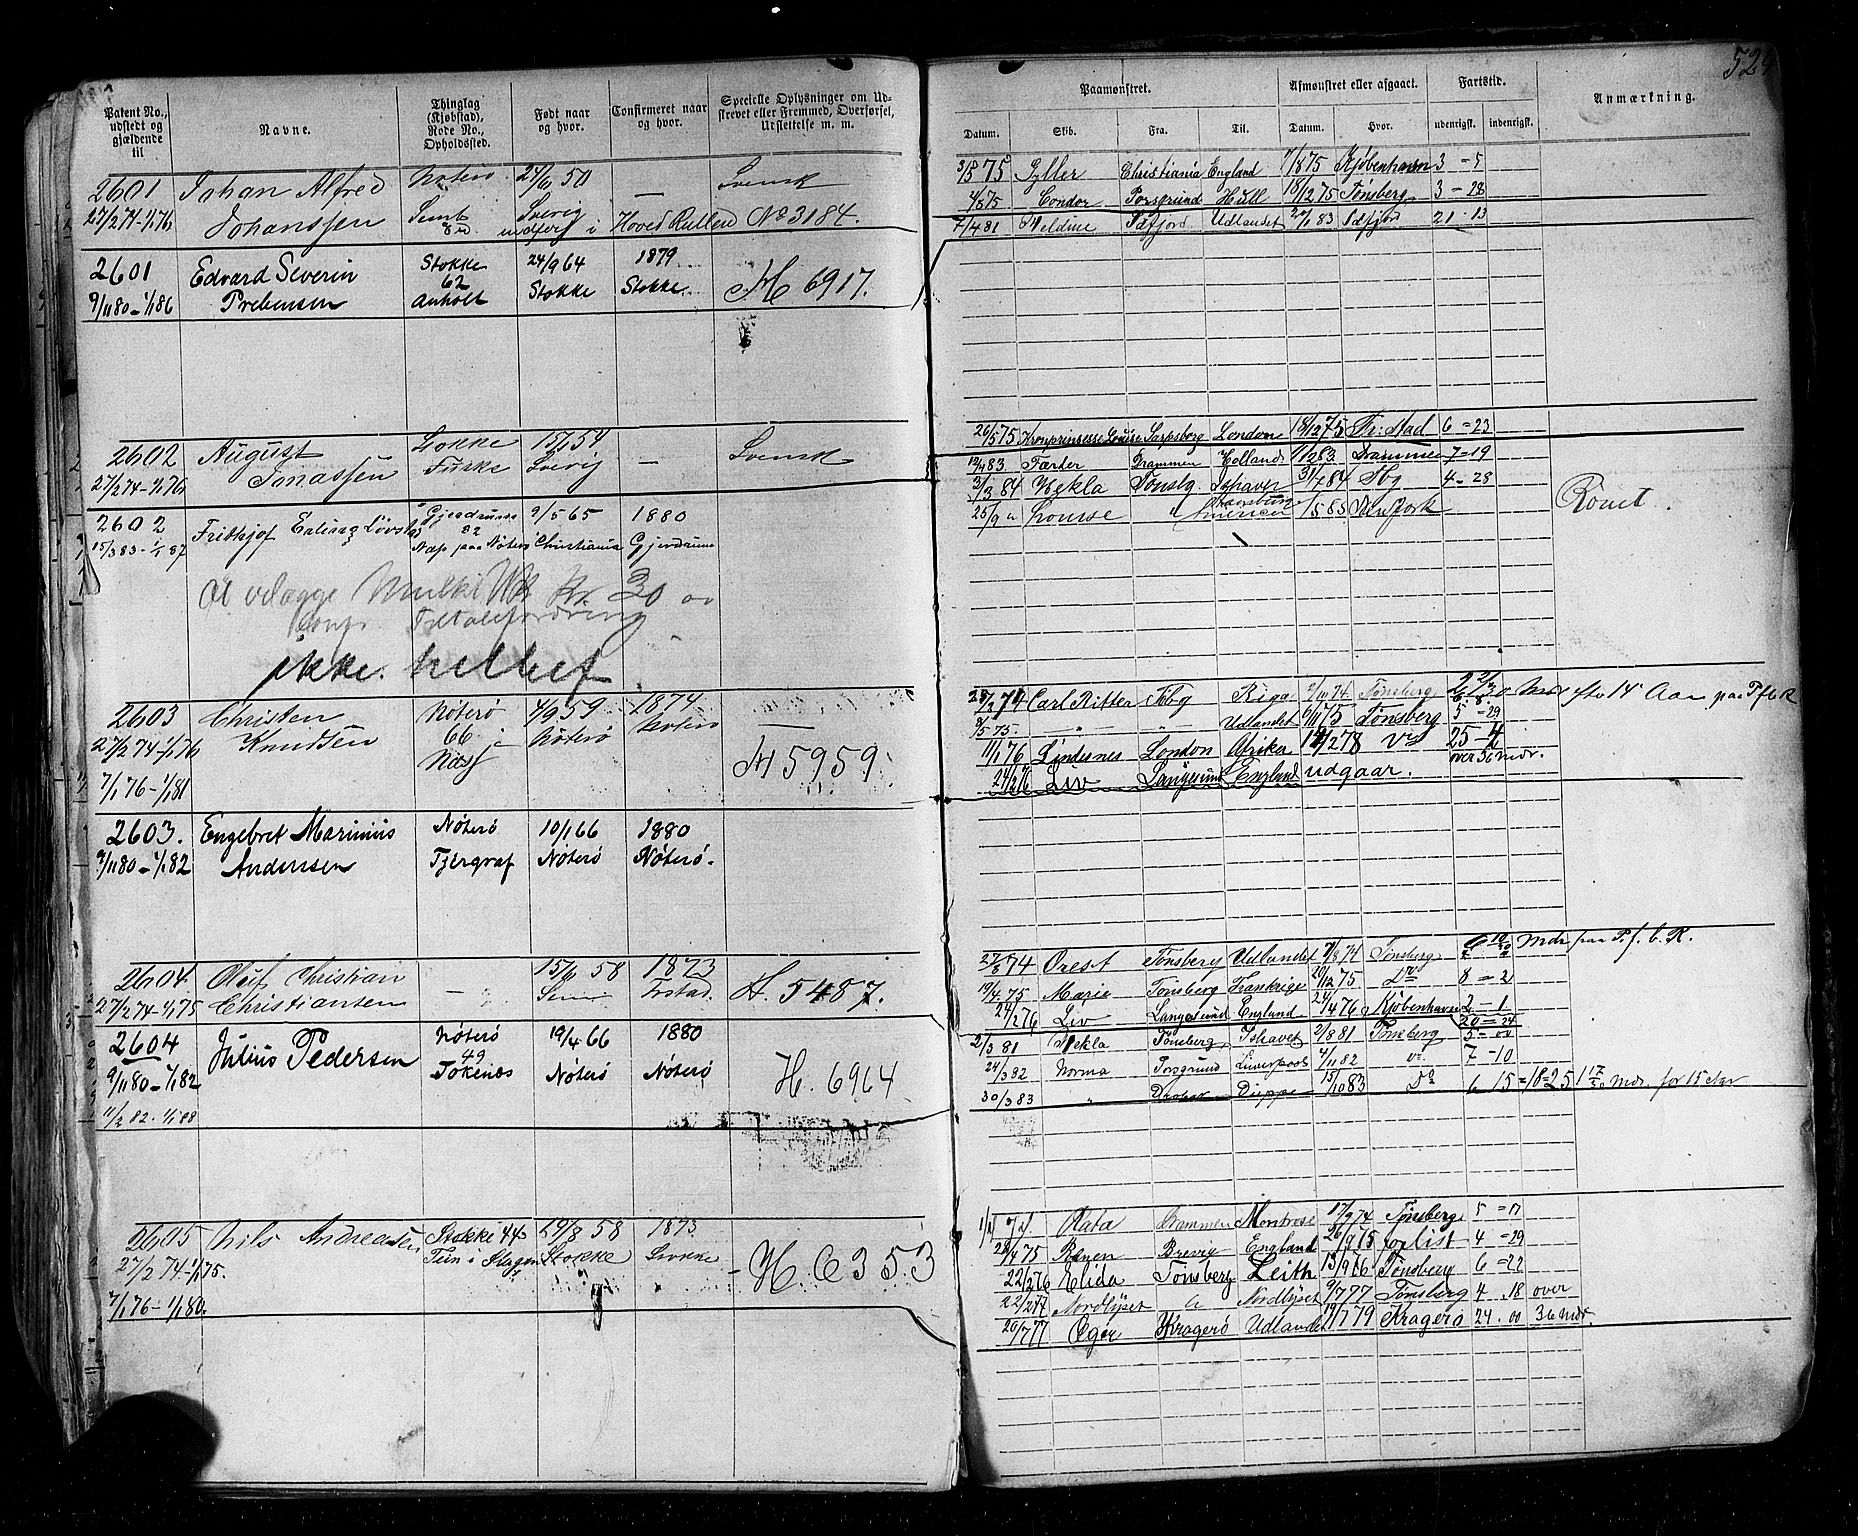 Patent No., udstedt og gjældende til
Navne.
Thinglag (Kjøbstad), Rode No., Opholdssted.
Født naar og hvor.
Confirmeret naar og hvor.
Specielle Oplysninger om Udskrevet eller Fremmed, Overførsel, Udslettelse m. m.
2601 Johan Alfred Nøterø 27/6 50 — Svensk
27/2 74-1/1 76 Johanssen Semb Sverig
indført i Hoved Rullen No 3184.
2601 Edvard Severin Stokke 24/9 64 1879
9/11 80-1/1 86 Prebensen 62 Anholt Stokke Stokke. H 6917.
2602 August Stokke 15/6 54 Svensk
27/2 74-1/1 76 Jonassen Sverig —
2602 Fridthjof Erling Lövstad Gjerdrum 9/5 65 1880
15/3 83-1/1 87 82 Næs paa Nøterø Christiania Gjerdrum
At vlægge Mulkt Kr. 30
Tiltalefordring
ikke.
2603 Christen Nøterø 4/9 59 1874 —
27/2 74-1/1 76 Knudsen 66 Nøterø Nøterø
7/1 76-1/1 81 Næs H 5959
2603. Engebret Marinius Nøterø 10/1 66 1880
9/11 80-1/1 82 Andersen Tjergraf Nøterø Nøterø.
2604 Oluf Christian — 15/6 58 1873 H. 5487.
27/2 74-1/1 75 Christiansen Sem
2604 Julius Pedersen Nøterø 19/4 66 1880
9/11 80-1/1 82 49 Tokenæs Nøterø Nøterø H. 6964
11/2 82-1/1 88
2605 Nils Andreassen Stokke 44 29/8 58 1873
27/2 74-1/1 75. Stokke Stokke H. 6353
7/1 76-1/1 80.
524
Paamønstret.
Afmønstret eller afgaaet.
Fartstid.
Anmærkning.
Datum. Skib. Fra. Til. Datum. Hvor. udenrigsk. indenrigsk.
3/5 75 Gyller Christiania England 7/8 75 Kjøbenhavn 3 = 5
4/8 75 Condor Porsgrund Hull 18/12 75 Tønsberg 3 = 28
7/4 81 Udlandet 20/1 83 21-13
26/5 75 Kronprinsesse Louise Sarpsborg London 18/12 75 Fr: Stad 6 = 23
12/4 83 Færder Drammen Holland Drammen 7-19
3/3 84 Hekla Tønsbg. Ishavet 31/7 84 Tbg 4-28
25/9 " Amerika New York
Rømt.
Carl Ritter Tbg Riga 9/10 74 Tønsberg Mdr efter 14 Aar paa P.f.b.R
9/5 75. " — " — Udlandet 6/11 75 Tønsberg 5 = 29
11/1 76 Lindesnes London Afrika 14/2 78 25-4
24/2 76 Liv Langesund England udgaar. over 36 mdr.
27/3 74 Orest Tønsberg Udlandet 7/8 74 Tønsberg 6 10/30 Mdr paa P.f.b.R.
19/4 75 Marie Tønsberg 20/12 75 Do 8 = 2
24/2 76 Liv Langesund England 24/4 76 Kjøbenhavn 2 - 1
20 = 24
2/3 81 Hekla Tønsberg Ishavet 2/8 81 Tønsberg 5 = 00
24/3 82 Norma Porsgrund Liverpool 4/11 82 7 - 10
30/3 83 " Dieppe 15/10 83 Do 6 15 = 18 = 25 1 17/30 Mdr. for 15 Aar
Drammen Montrose 17/9 74 Tønsberg 5 = 17
20/4 75 Brevig England forlist 4 = 29
22/2 76 Elida Tønsberg Leith 13/9 76 Tønsberg 6 = 22
22/2 77 Nordlyset " Nordlyset 9/7 77 Tønsberg 4 . 18 over
20/7 77 Øger Kragerø Udlandet 19/7 79 Kragerø 24 . 00 36 mdr.